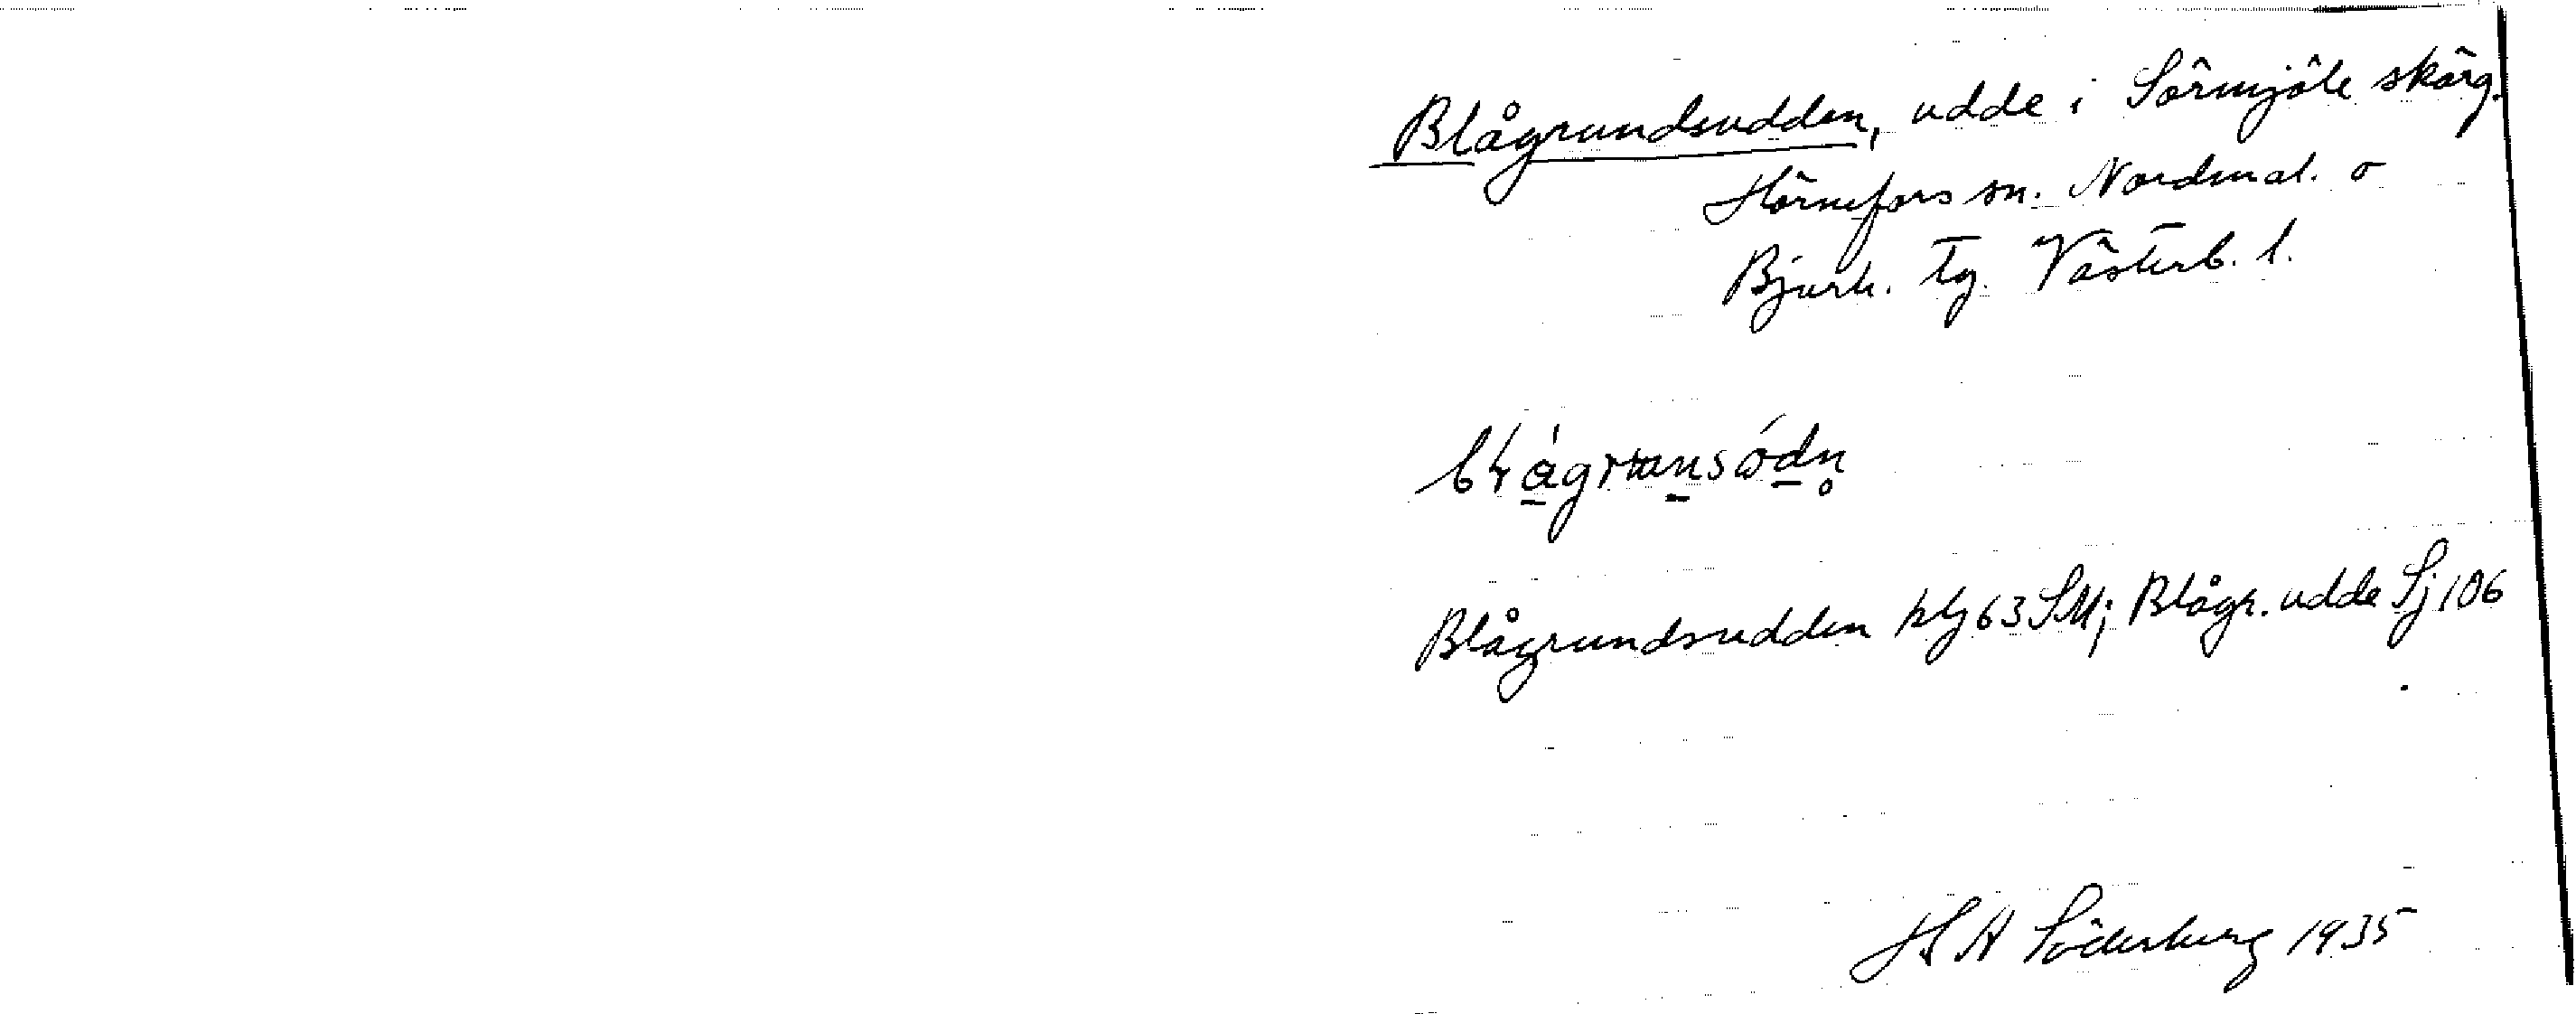 Blågrundsudden, udde i Sörmjöle skärg.
Hörnefors sn. Nordmal. o
Bjurh. tg. Västerb. l.
Blågrundsudden plg 63 SM; Blågr. udde Sj 106
H S A Söderberg 1935